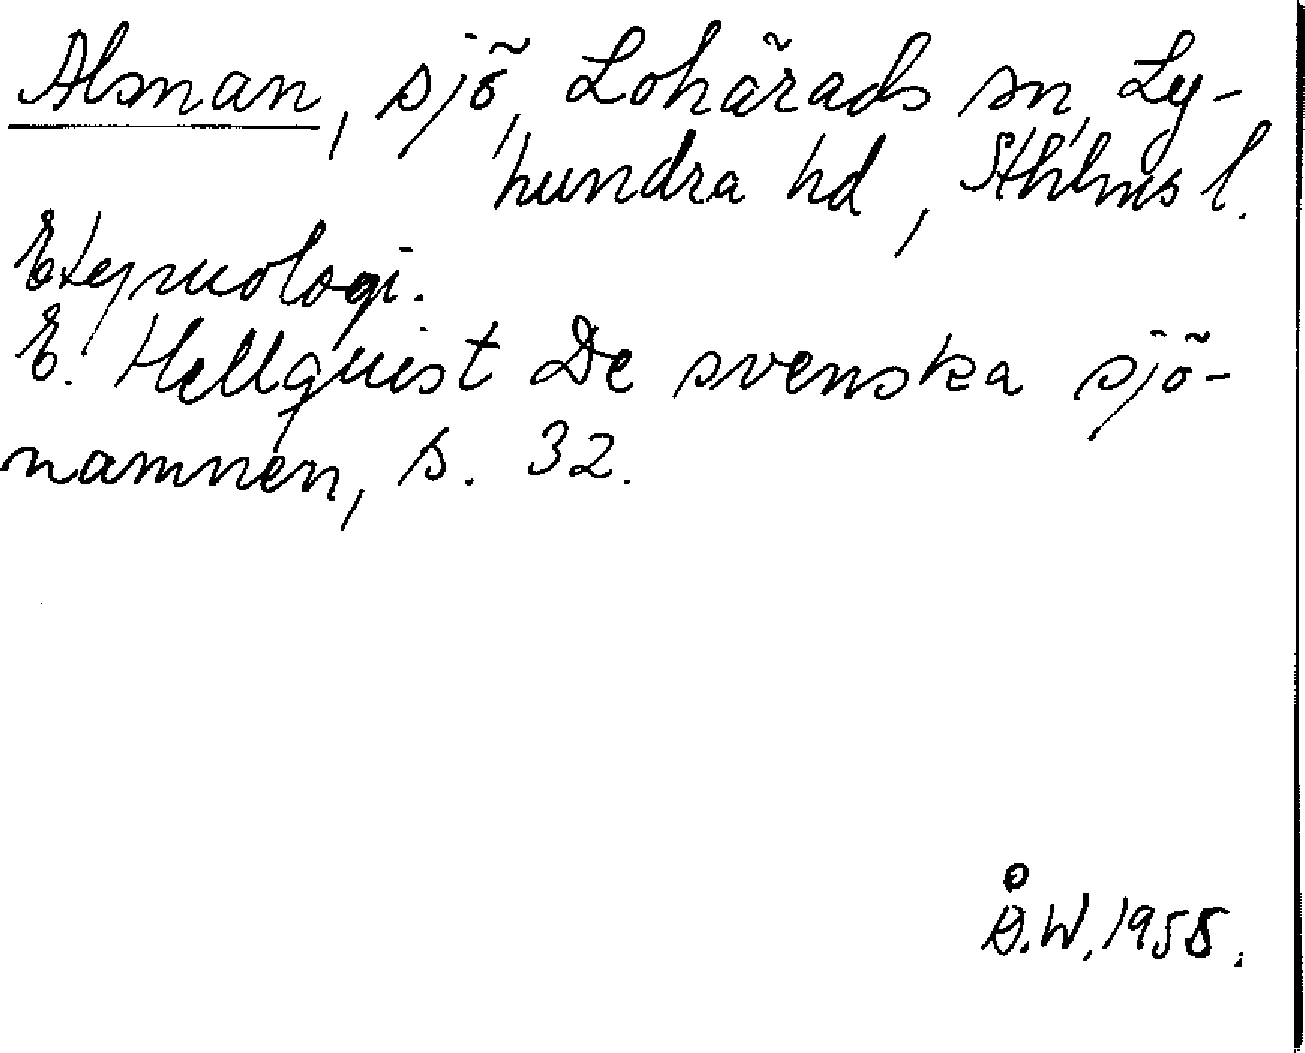 Alsman, sjö, Lohärads sn, Ly-
hundra hd, Sthlms l.
Etymologi.
E. Hellquist De svenska sjö-
namnen, s. 32.
Å.W. 1958.